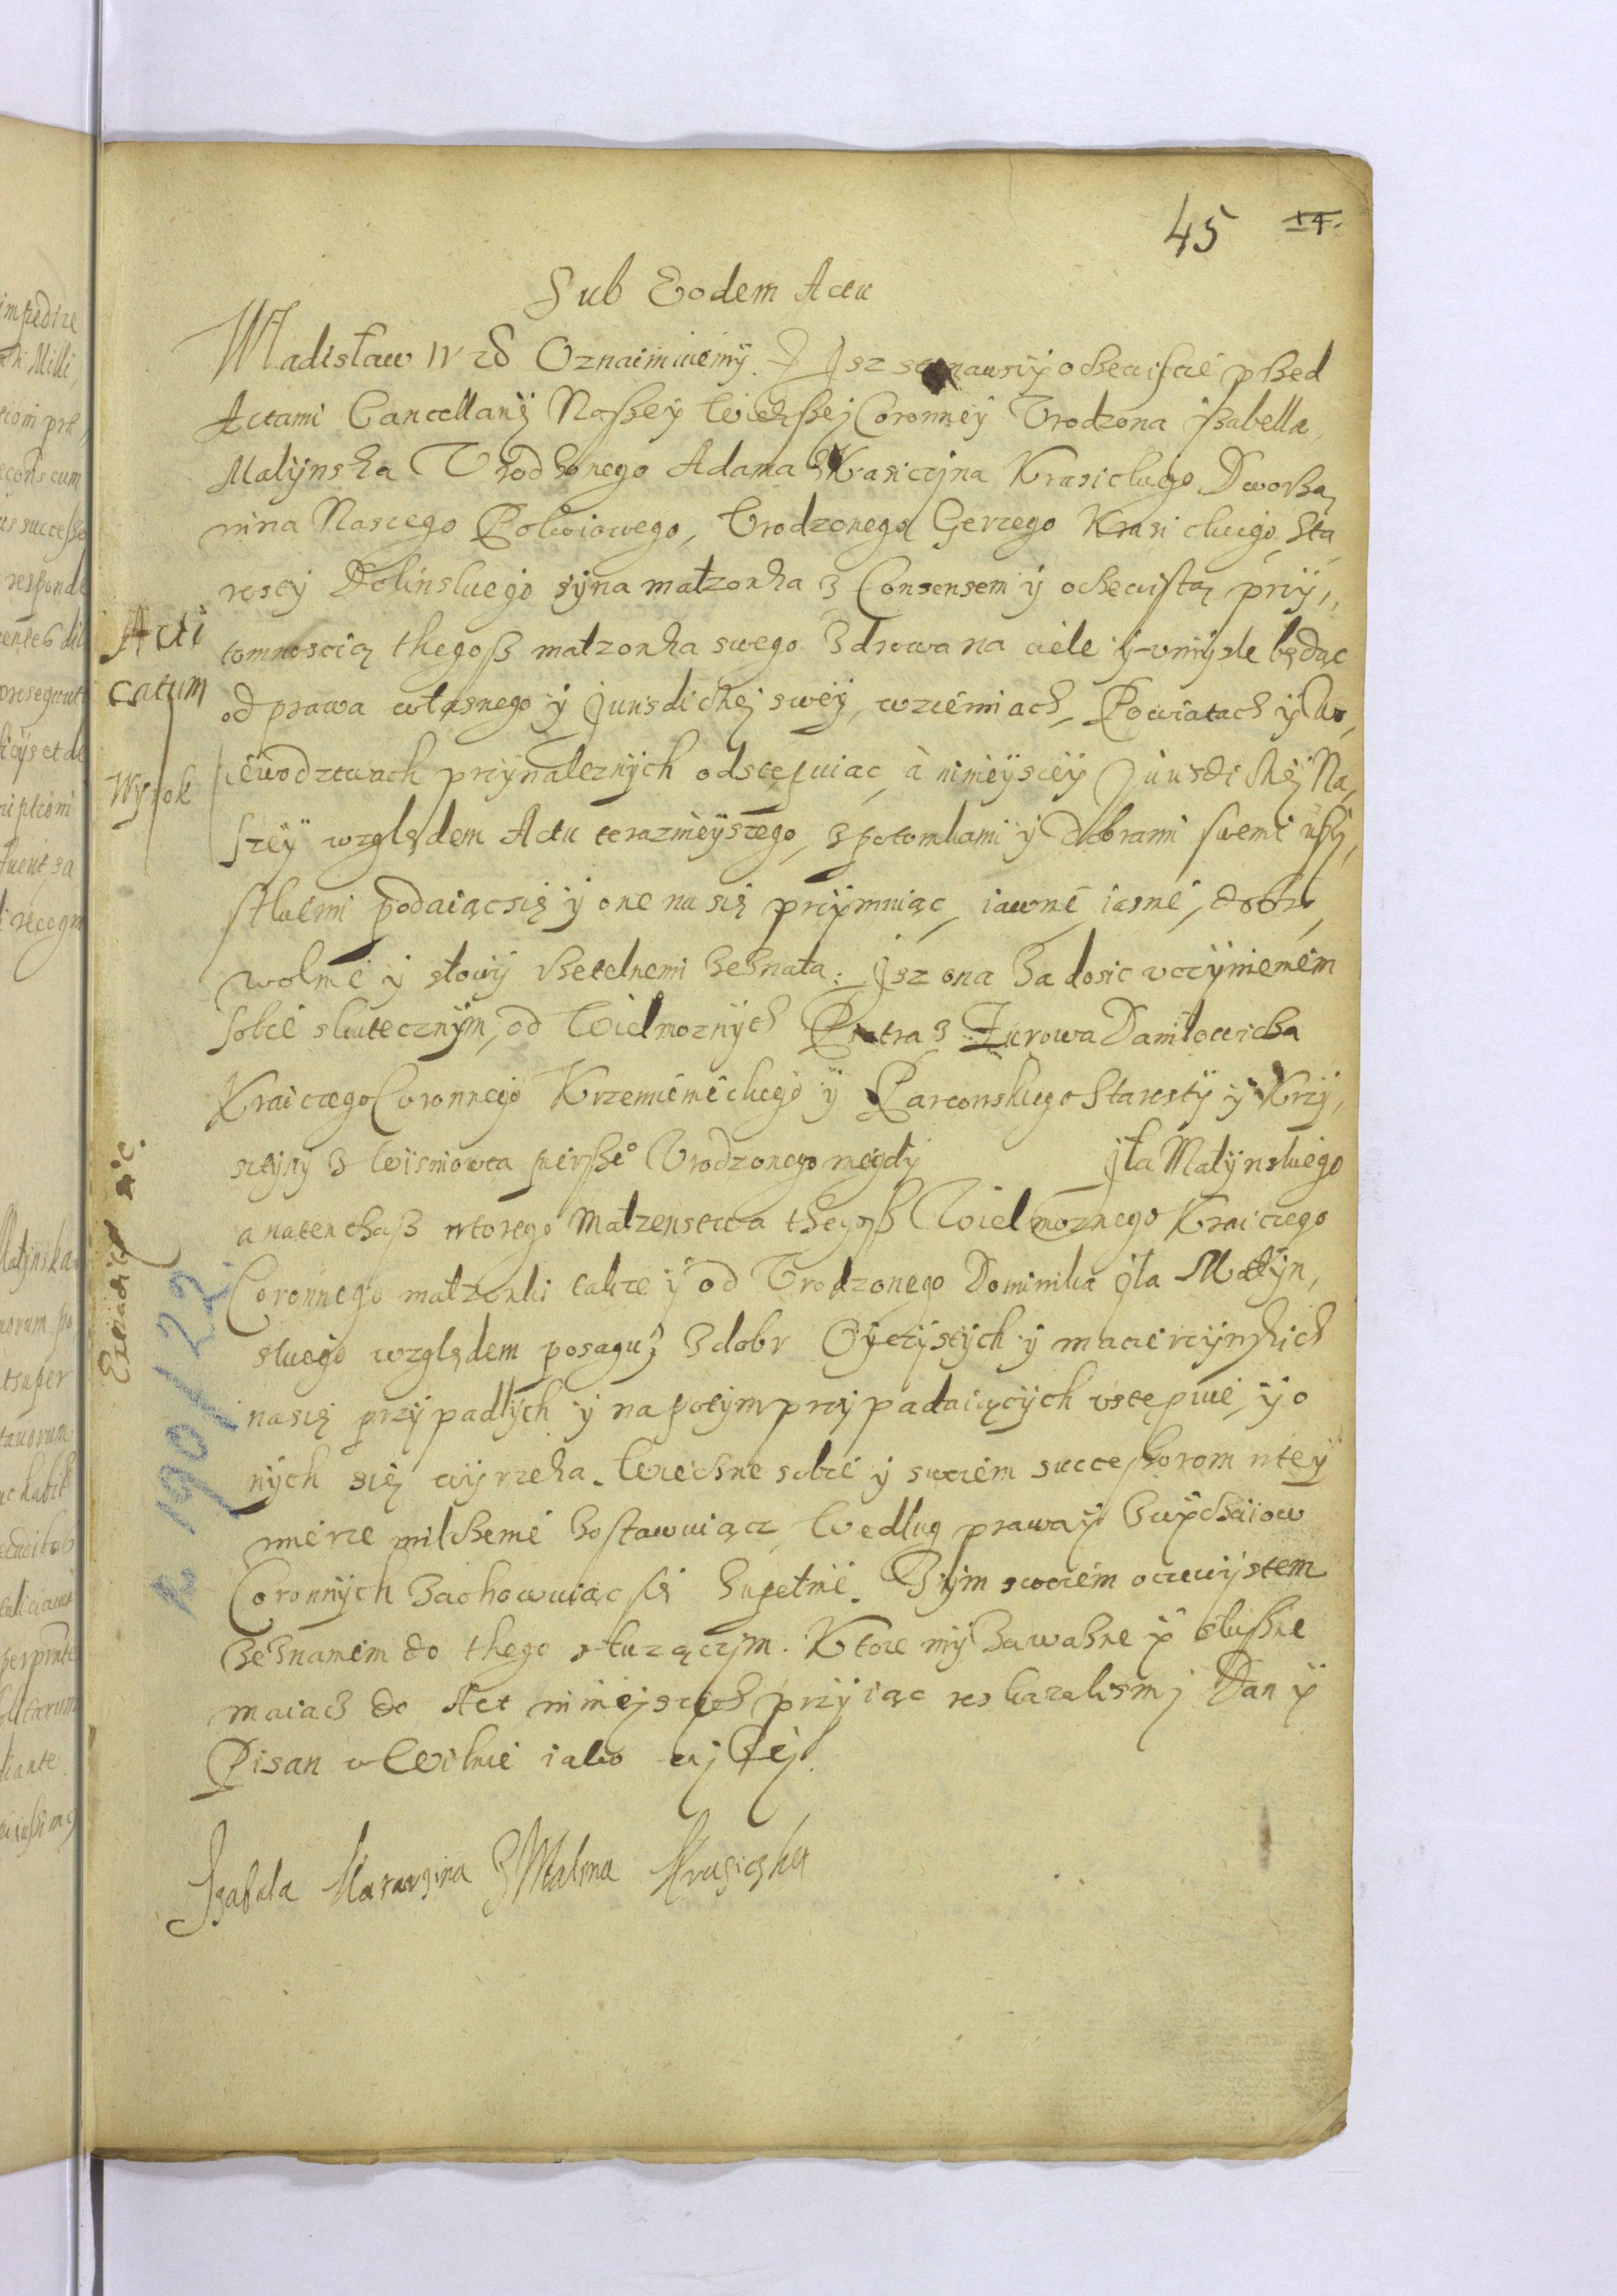 45 14.
Sub Eodem Actu
Władisław IV etc Oznaimuiemy. Isz stanawszy oczewiscie przed
Actami Cancellariy Naszey Wiekszej Coronney Vrodzona Jsabella
Malynska Vrodzonego Adama z Krasiczyna Krasickiego Dworza,
nina Naszego Pokoiowego, Vrodzonego Gerzego Krasickiego Sta,
rosty Dolinskiego syna małzonka z Consensem y oczewistą przy,,
tomnoscią thegosz małzonka swego zdrowa na ciele y vmysle będąc
od prawa własnego y Jurisdickej swey, wziemiach, Powiatach y Wo,
iewodztwach przynaleznych odstępuiąc, à ninieyszey Jurisdickey Na,
szey względem Actu teraznieyszego, z potomkami y dobrami swemi wszy,
stkiemi podaiąc się y one na się przymuiąc, iawnie iasnie, dobro,
wolnie y słowy rzetelnemi zeznała: Jsz ona za dosic vczynieniem
sobie skutecznym, od Wielmoznych Piotra z Zurowa Daniłowicza
Kraiczego Coronnego Krzemienieckiego y Parczowskiego Starosty y Krzy,
styny z Wisniowca pierszego Vrodzonego niegdy Jła Malynskiego
a natenchasz wtorego Małzenstwa thegosz Wielmoznego Kraiczego
Coronnego małzonki takze y od Vrodzonego Dominika Jła Malyn,
skiego względem posagu, z dobr Oyczystych y macierzynskich
na się przypadłych y napotym przypadaiących vstępuie, y o
nych się wyrzeka. Wieczne sobie y swoiem succeszorom wtey
mierze milczenie zostawuiącz, Wedlug prawa y zwyczaiow
Coronnych zachowuiąc się zupełnie. Tym swoiem oczewistem
zeznaniem do thego słuzączym. Ktore my zawazne y słuszne
maiacz do Act ninieyszych przyiąc roskazalismy Dan y
Pisan w Wilnie iako wyzey.
Jzabela Katarzina z Malina Krasiczka
Acti
catum
Wypok
Extradit sic.
k 190/22.